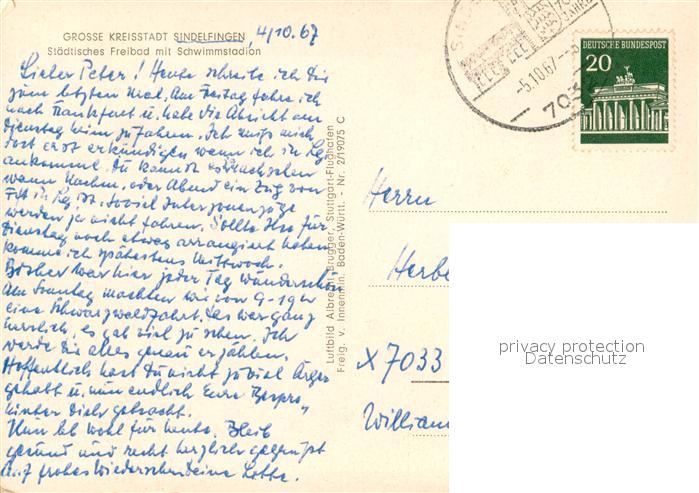 GROSSE KREISSTADT SINDELFINGEN
4/10.67
Städtisches Freibad mit Schwimmstadion
Lieber Peter! Heute schreibe ich Dir
zum letzten Mal. Am Freitag fahre ich
nach Frankfurt u. habe die Absicht am
Dienstag heim zu fahren. Ich muß mich
dort erst erkundigen wann ich in Lg.
ankomme. Du kannst ja nachsehen
wann Nachm. oder Abend ein Zug von
Fft in Lg. ist. Soviel Interzonenzüge
werden ja nicht fahren. Sollte Ilse für
Dienstag noch etwas arrangiert haben
komme ich spätestens Mittwoch.
Bisher war hier jeder Tag wunderschön
Am Sonntag machten wir von 9-19 Uhr
eine Schwarzwaldfahrt. Das war ganz
herrlich, es gab viel zu sehen. Ich
werde Dir alles genau erzählen.
Hoffentlich hast Du nicht zuviel Ärger
gehabt u. nun endlich Eure
hinter Dich gebracht.
Nun leb wohl für heute. Bleib
gesund und recht herzlich gegrüßt
Auf frohes Wiedersehen Deine Lotte.
Luftbild Albrecht Brugger, Stuttgart-Flughafen
Freig. v. Innenmin. Baden-Württ. - Nr. 2/19075 C
-5.10.67
703
DEUTSCHE BUNDESPOST
20
Herrn
Herbe
X 7033
William
privacy protection
Datenschutz